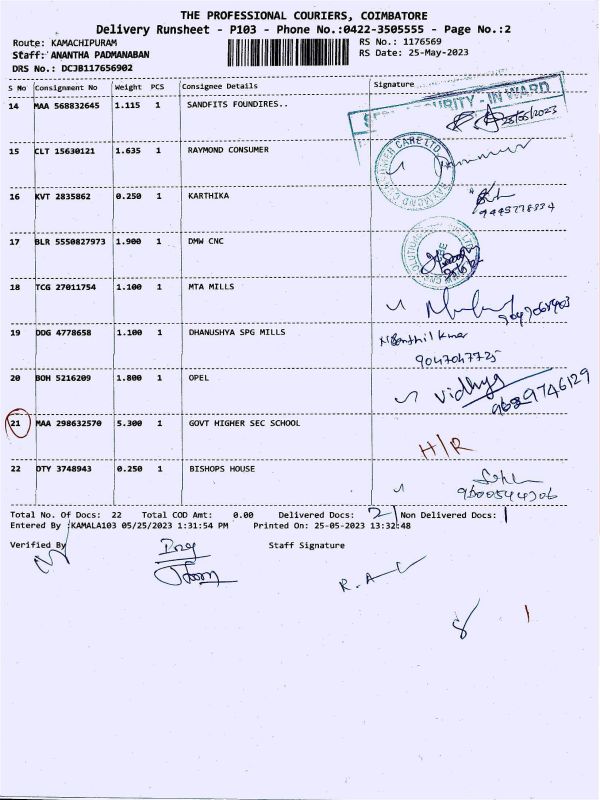 THE PROFESSIONAL COURIERS, COIMBATORE
Delivery Runsheet - P103 - Phone No.:0422-3505555 - Page No.:2
Route: KAMACHIPURAM RS No.: 1176569
Staff: ANANTHA PADMANABAN RS Date: 25-May-2023
DRS No.: DCJB117656902
S No Consignment No Weight PCS Consignee Details Signature
14 MAA 568832645 1.115 1 SANDFITS FOUNDIRES..
SECURITY - IN WARD
25/05/2023
15 CLT 15630121 1.635 1 RAYMOND CONSUMER
16 KVT 2835862 0.250 1 KARTHIKA
17 BLR 5550827973 1.900 1 DMW CNC
18 TCG 27011754 1.100 1 MTA MILLS
19 DDG 4778658 1.100 1 DHANUSHYA SPG MILLS
9047047725
20 BOH 5216209 1.800 1 OPEL
Vidhya
9629746129
21 MAA 298632570 5.300 1 GOVT HIGHER SEC SCHOOL H/R
22 OTY 3748943 0.250 1 BISHOPS HOUSE
9600544206
Total No. Of Docs: 22 Total COD Amt: 0.00 Delivered Docs: 21 Non Delivered Docs: 1
Entered By :KAMALA103 05/25/2023 1:31:54 PM Printed On: 25-05-2023 13:32:48
Verified By Staff Signature
8 1